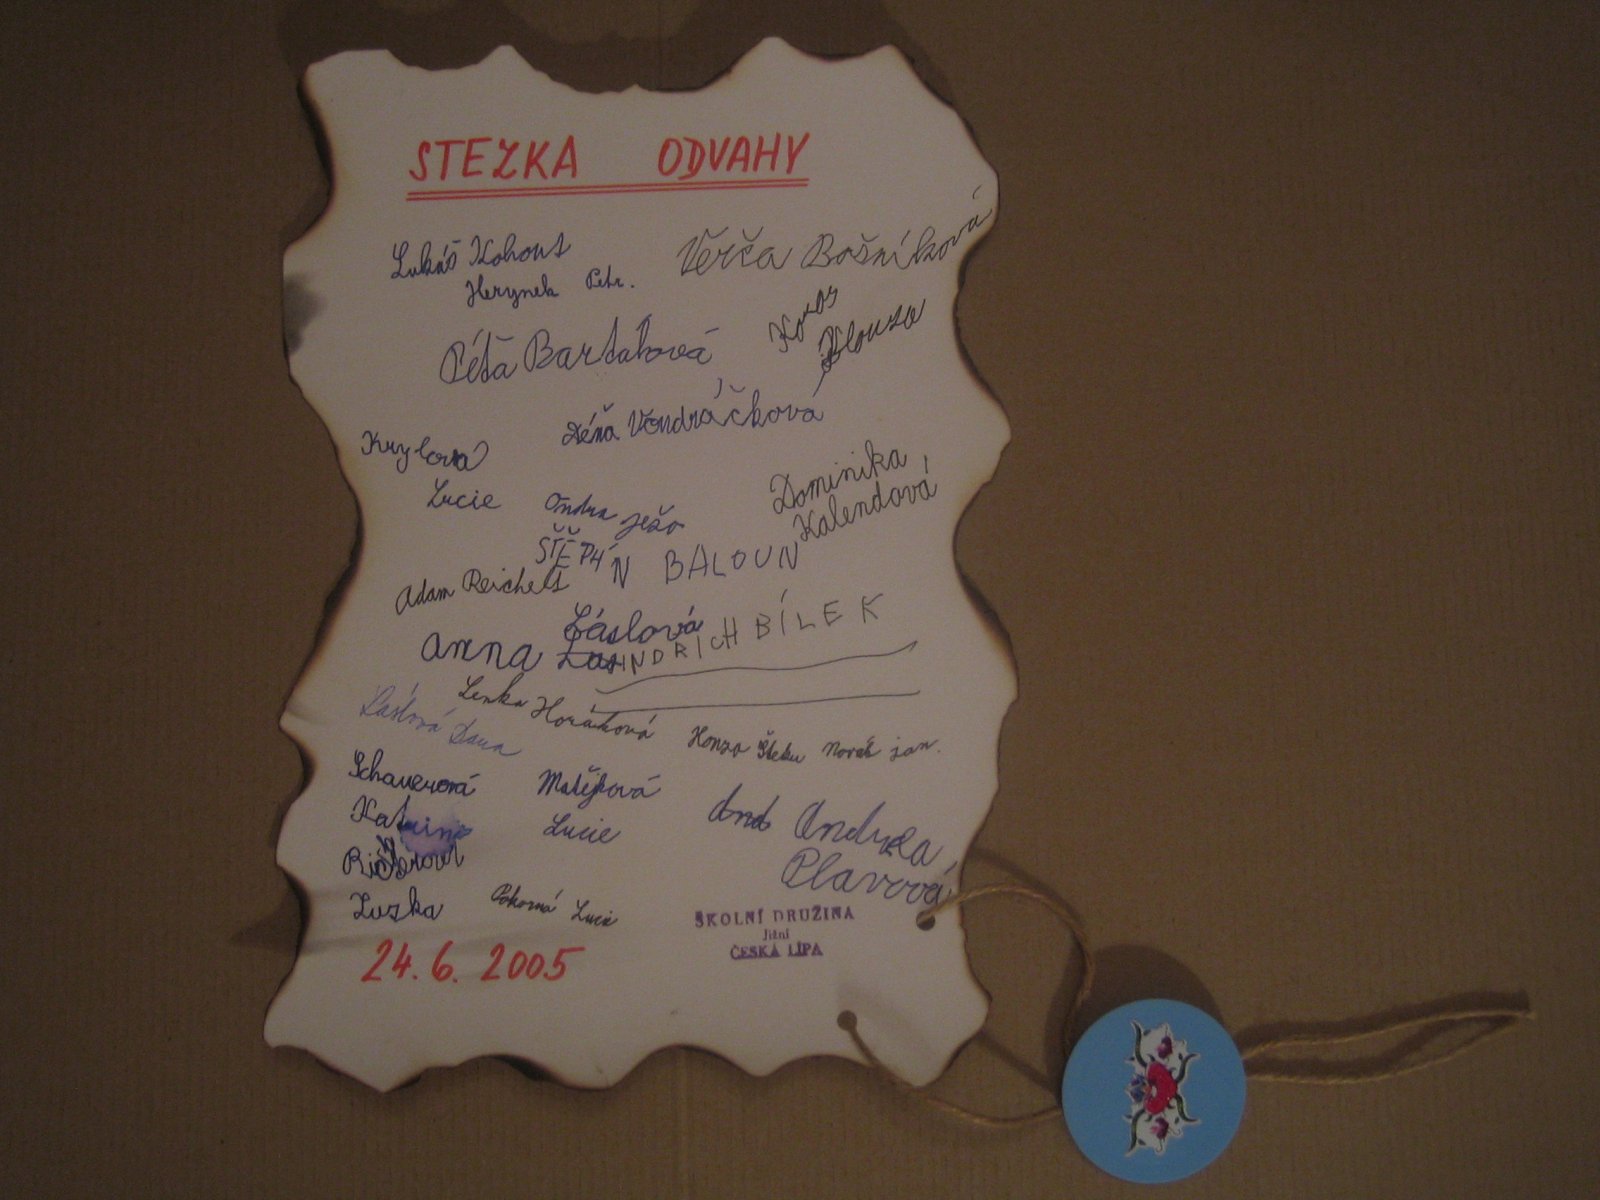 STEZKA ODVAHY
Lukáš Kohout
Verča Bošníková
Herynek Petr.
Péťa Bartáková
Klouza
Vondráčková
Krylová
Lucie
Ondra Ježo
Dominika
Kalendová
ŠTĚPÁN BALOUN
Adam Reichelt
Anna Láslová
JINDRICH BÍLEK
Lenka Horáková
Láslová Dana
Honza Novák jan.
Schauerová
Matějková
Lucie
And Andrea
Plavcová
Luzka
Pokorná Lucie
ŠKOLNÍ DRUŽINA
Jižní
ČESKÁ LÍPA
24. 6. 2005